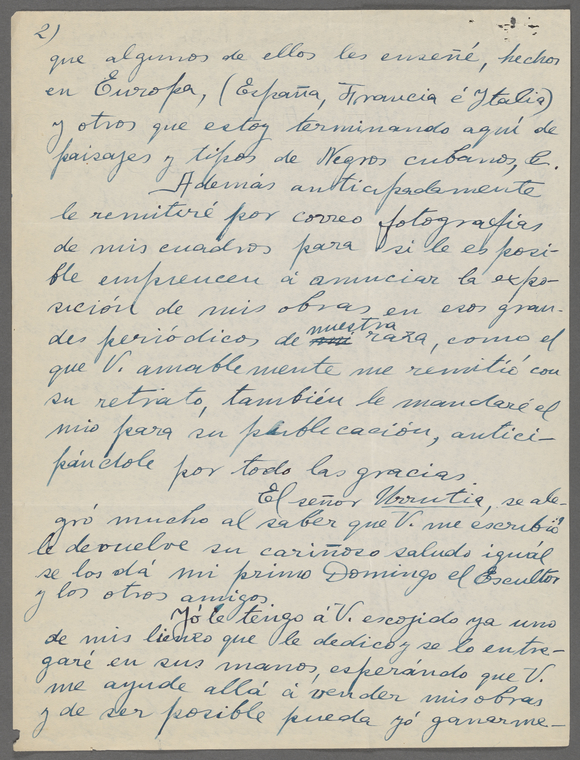 2)
que algunos de ellos les enseñé, hechos
en Europa, (España, Francia é Italia)
y otros que estoy terminando aquí de
paisajes y tipos de Negros cubanos, &.
Además anticipadamente
le remitiré por correo fotografías
de mis cuadros para si le es posi-
ble empiencen á anunciar la expo-
sición de mis obras en esos gran-
des periódicos de nuestra raza, como el
que V. amablemente me remitió con
su retrato, también le mandaré el
mio para su publicación, antici-
pándole por todo las gracias.
El señor Urrutia, se ale-
gró mucho al saber que V. me escribió
le devuelve su cariñoso saludo iguál
se los dá mi primo Domingo el Escultor
y los otros amigos.
Yó le tengo á V. escojido ya uno
de mis lienzo que le dedico y se lo entre-
garé en sus manos, esperándo que V.
me ayude allá á vender mis obras
y de ser posible pueda yó ganarme-